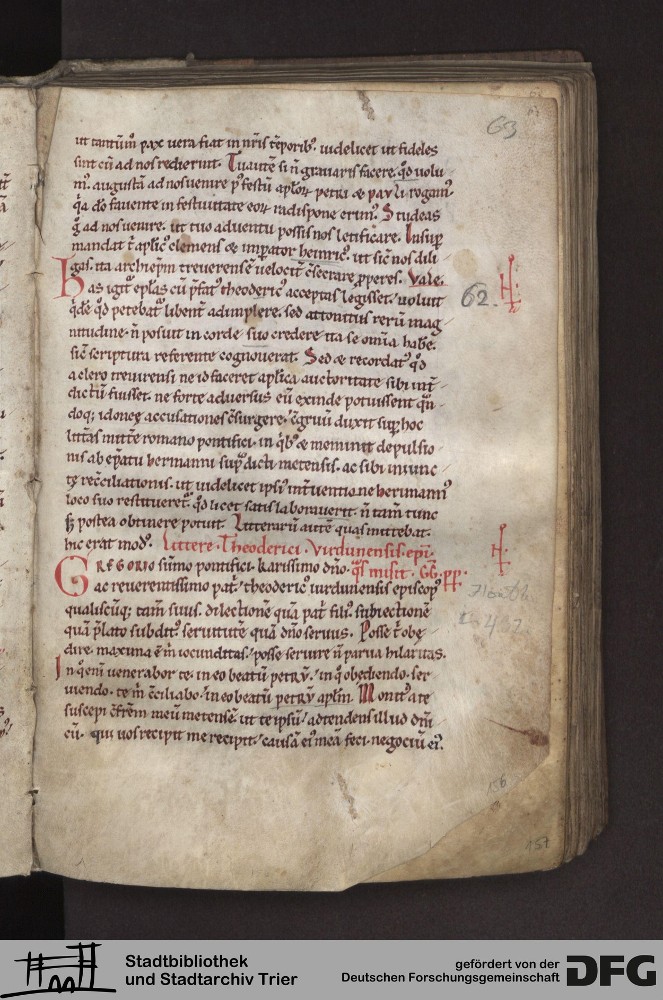 63
ut tantūm̄ pax uera fiat in nr̄is tēporib᷒. uidelicet ut fideles
sint cū ad nos redierint. Tu autē si n̄ grauaris facere qd̄ uolu
m᷒. augustā ad nos uenire p᷒ festū aplor̄ petri & pauli rogam᷒
q̄a do fauente in festiuitate eor̄ ra dispone erim᷒. Studeas
g̊ ad nos uenire. ut tuo aduentu possis nos letificare. Insup
mandat t̄ aplic᷒ clemens & imperator heinric᷒. ut sic nos dili
gas. ita archiep̄m treuerensē uelocit̄ c̄secrare pperes. Vale.
Has igit᷒ ep̄las cū p̄fat᷒ theoderic᷒ acceptas legisset. uoluit
62.
q̄de qd̄ petebat᷒ libent̄ adimplere. sed attonitus rerū mag
nitudine. n̄ posuit in corde suo credere ita se om̄ia habē.
sic scriptura referente cognouerat. Sed & recordat᷒ qd̄
a clero treuirensi ne id faceret aplica auctoritate sibi int̄
dictū fuisset. ne forte aduersus eū exinde potuissent qn̄
doq; idoneę accusationes c̄surgere. c̄gruū duxit sup hoc
litt̄as mitte romano pontifici. in qib᷒ & meminit depulsio
nis ab ep̄atu hermanni sup̄dicti metensis. ac sibi iniunc
tę recc̄iliationis. ut uidelicet ipsi᷒ int̄uentio ne herimann᷒
loco suo restitueret᷒. qd̄ licet satis laborauerit. n̄ tam̄ tunc
s; postea obtinere potuit. Litterarū autē quas mittebat.
hic erat mod᷒. Littere. Theoderici. Virdunensis. epi.
GREGORIO sūmo pontifici. karissimo dn̄o. q̄s misit. GG. pp.
ac reuerentissimo pat̄. theoderic᷒ uirdunensis episcop᷒
qualiscūq; tam̄ suus. dilectionē quā pat̄ fili᷒. subiectionē
quā p̄lato subdit᷒. seruitutē quā dn̄o seruus. Posse t̄ obę
dire. maxima ē m̄ iocunditas. posse seruire n̄ parua hilaritas.
In q̊ eni uenerabor te. in eo beatū petrū. in q̊ obediendo. ser
uiendo. te m̄ c̄ciliabo. in eo beatū petrū aplm̄. Monit᷒ a te
suscepi c̄frēm meū metensē ut te ipsū. adtendens illud dn̄i
cū. qui uos recipit me recipit. causā ei᷒ meā feci. negociū ei᷒.
156
157
Stadtbibliothek
und Stadtarchiv Trier
gefördert von der
Deutschen Forschungsgemeinschaft
DFG